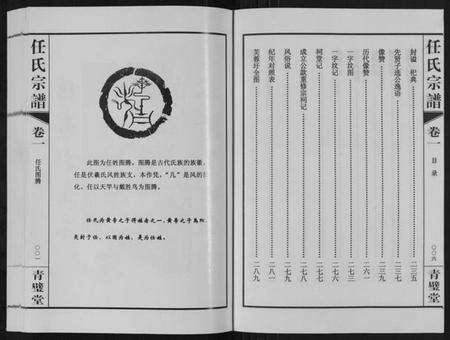 任氏宗譜
卷一
目录
〇〇六
青璧堂
封谥 祀典
二三五
先贤子选公逸语
二三七
像赞
二三九
历代像赞
二六一
一字坟图
二七三
一字坟记
二七六
祠堂记
二七七
成立公款重修宗祠记
二七八
风俗说
二七九
纪年对照表
二八一
芙蓉圩全图
二八九
此图为任姓图腾。图腾是古代氏族的族徽，
任是伏羲氏风姓族支，本作凭，“几”是风的
化，任以天竿与戴胜鸟为图腾。
任氏为黄帝之子得姓者之一，黄帝之子禹阳
受封于任，以国为姓，是为任姓。
任氏宗譜
卷一
任氏图腾
〇〇一
青璧堂